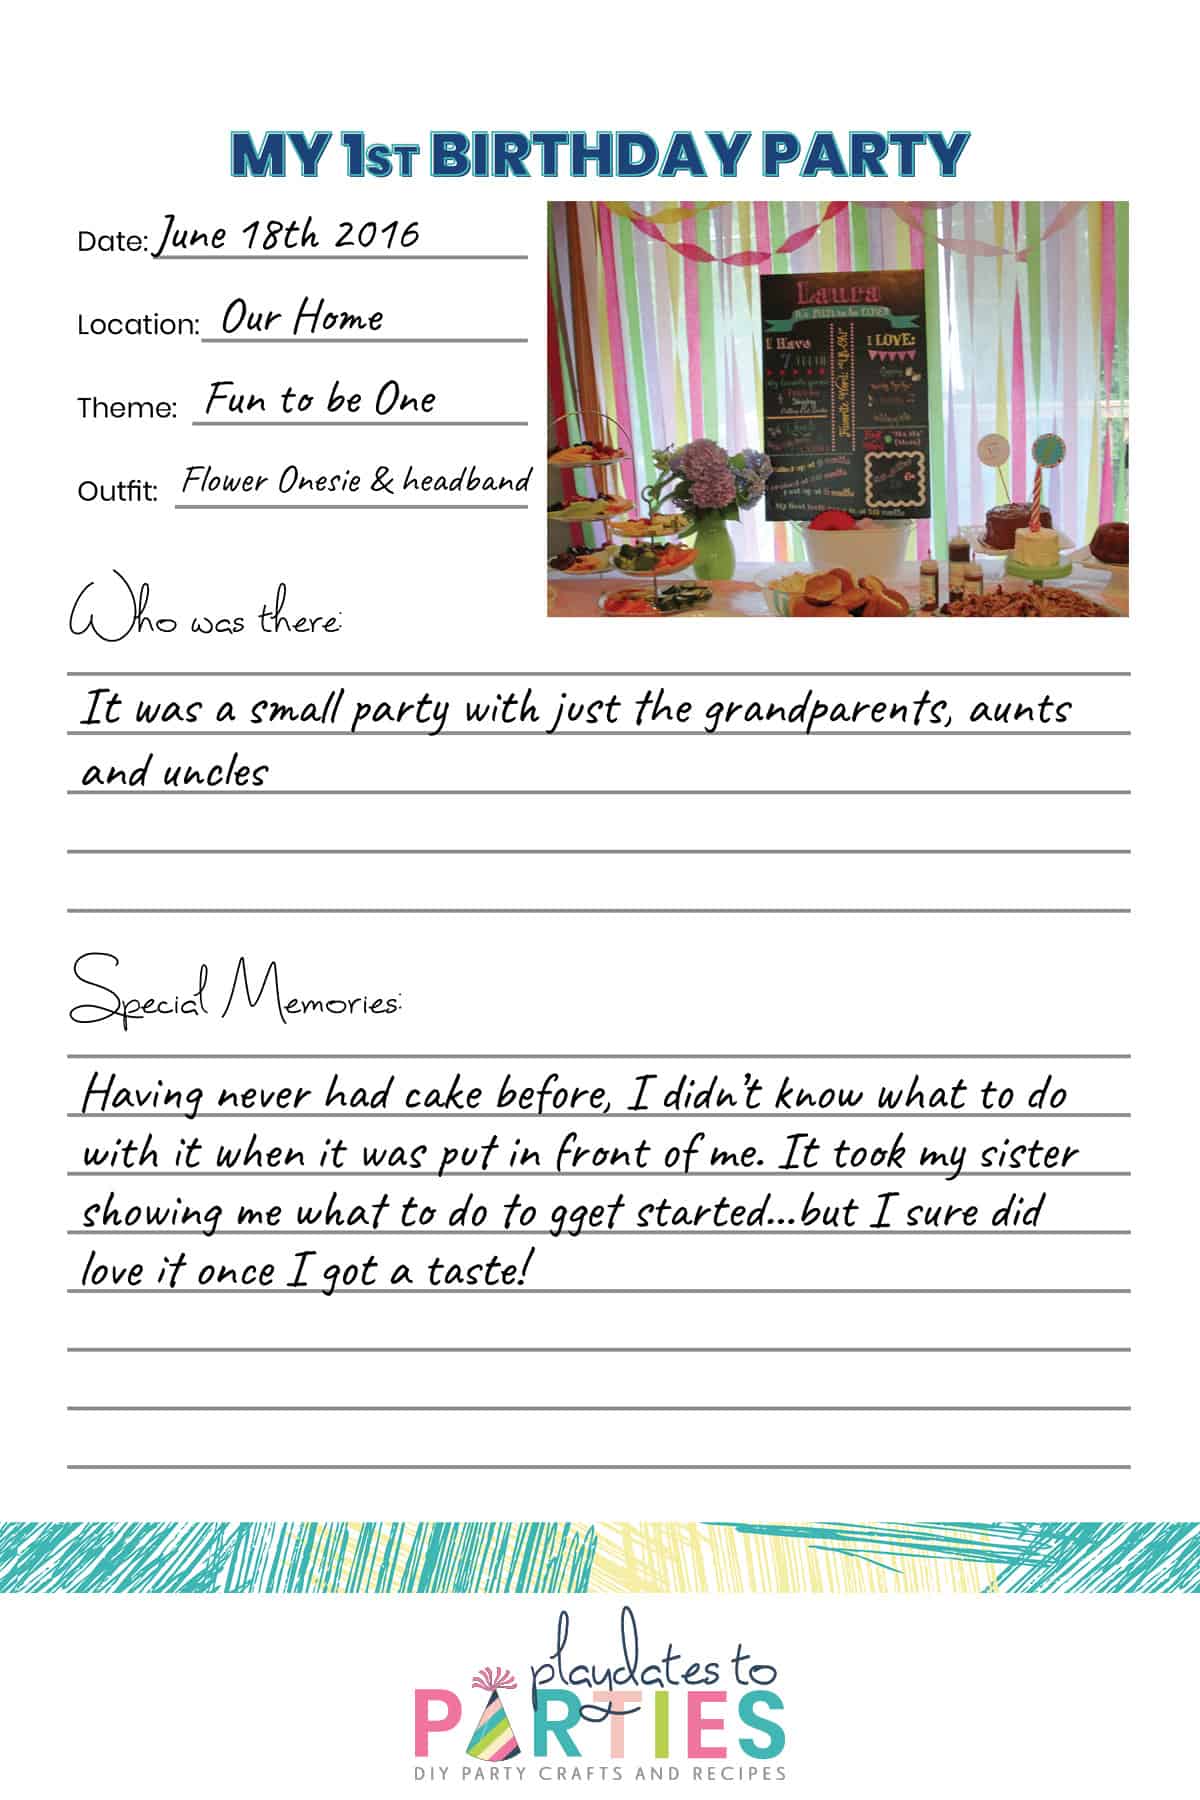 MY 1ST BIRTHDAY PARTY
Date: June 18th 2016
Location: Our Home
Theme: Fun to be One
Outfit: Flower Onesie & headband
Laura
I Have
7
I LOVE:
Who was there:
It was a small party with just the grandparents, aunts
and uncles
Special Memories:
Having never had cake before, I didn't know what to do
with it when it was put in front of me. It took my sister
showing me what to do to gget started...but I sure did
love it once I got a taste!
playdates to
PARTIES
DIY PARTY CRAFTS AND RECIPES